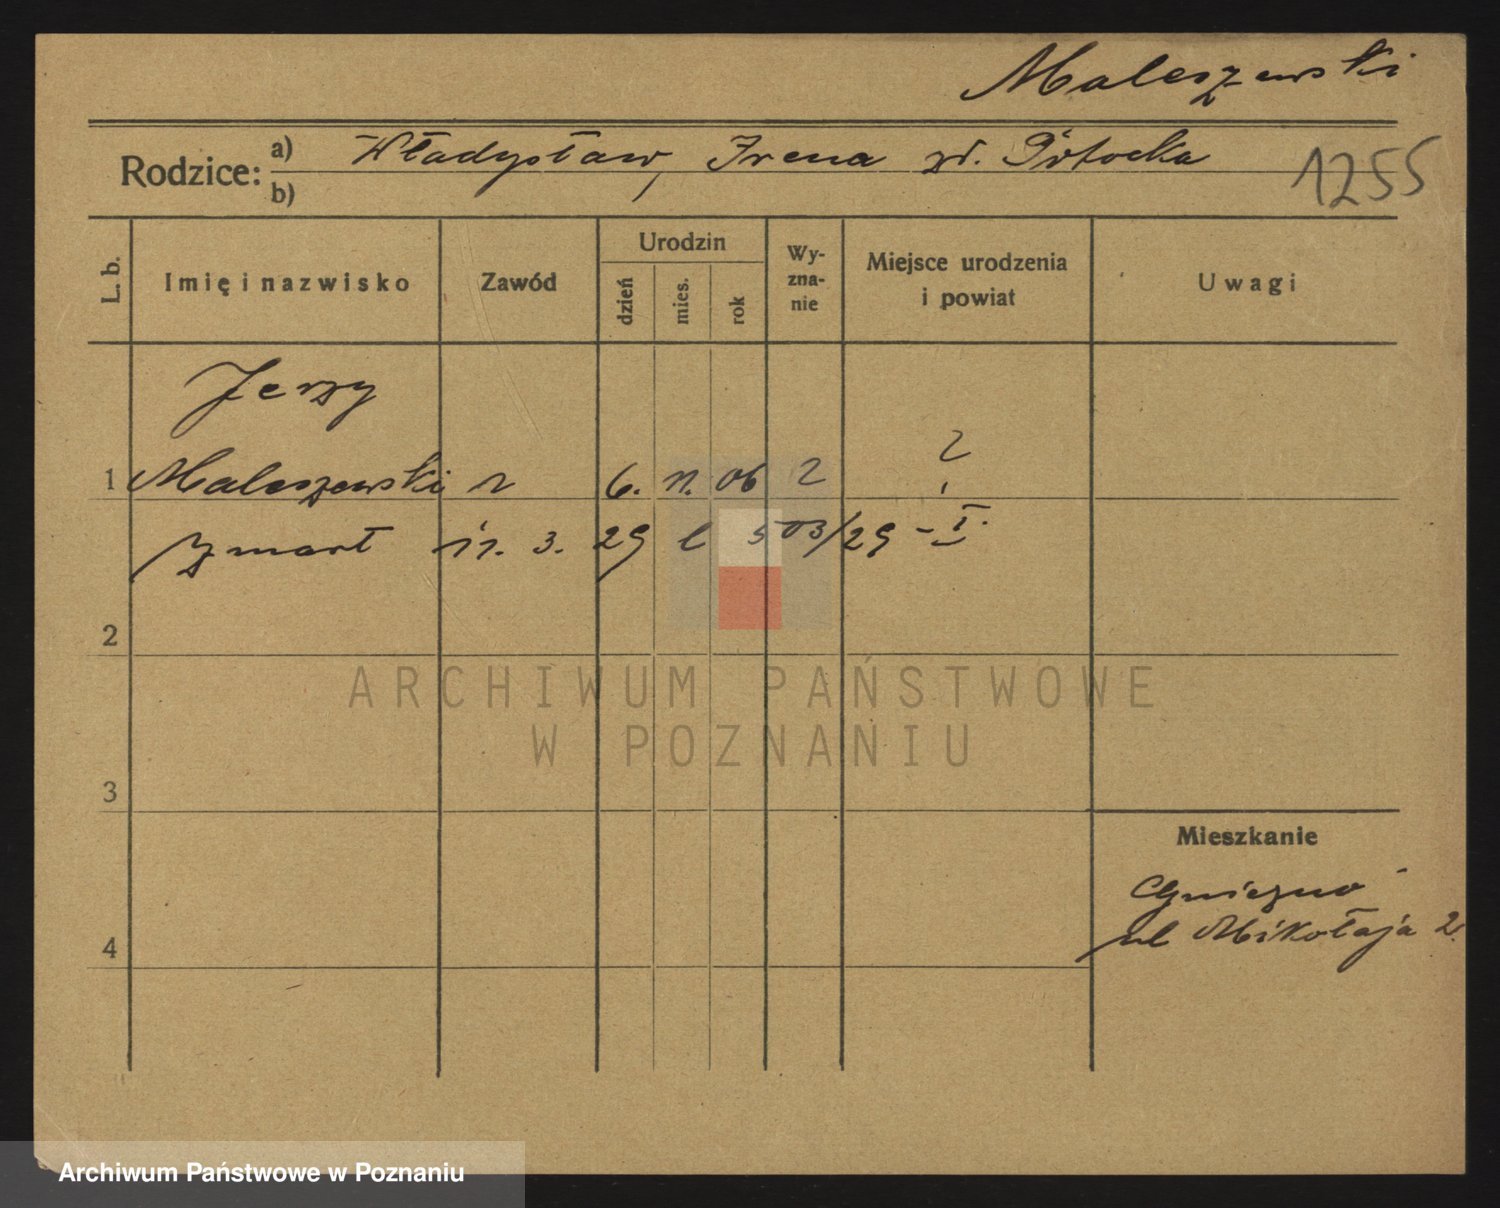 Maleszewski
Rodzice:
a) Władysław, Irena zd. Potocka
b)
1255
L. b.
Imię i nazwisko
Zawód
Urodzin
dzień
mies.
rok
Wy-
zna-
nie
Miejsce urodzenia
i powiat
Uwagi
Jerzy
1 Maleszewski ? 6. 11. 06 ? ?
zmarł 11. 3. 29 l 503/29 - I.
2
3
4
Mieszkanie
Gniezno
ul Mikołaja 2.
ARCHIWUM PAŃSTWOWE
W POZNANIU
Archiwum Państwowe w Poznaniu